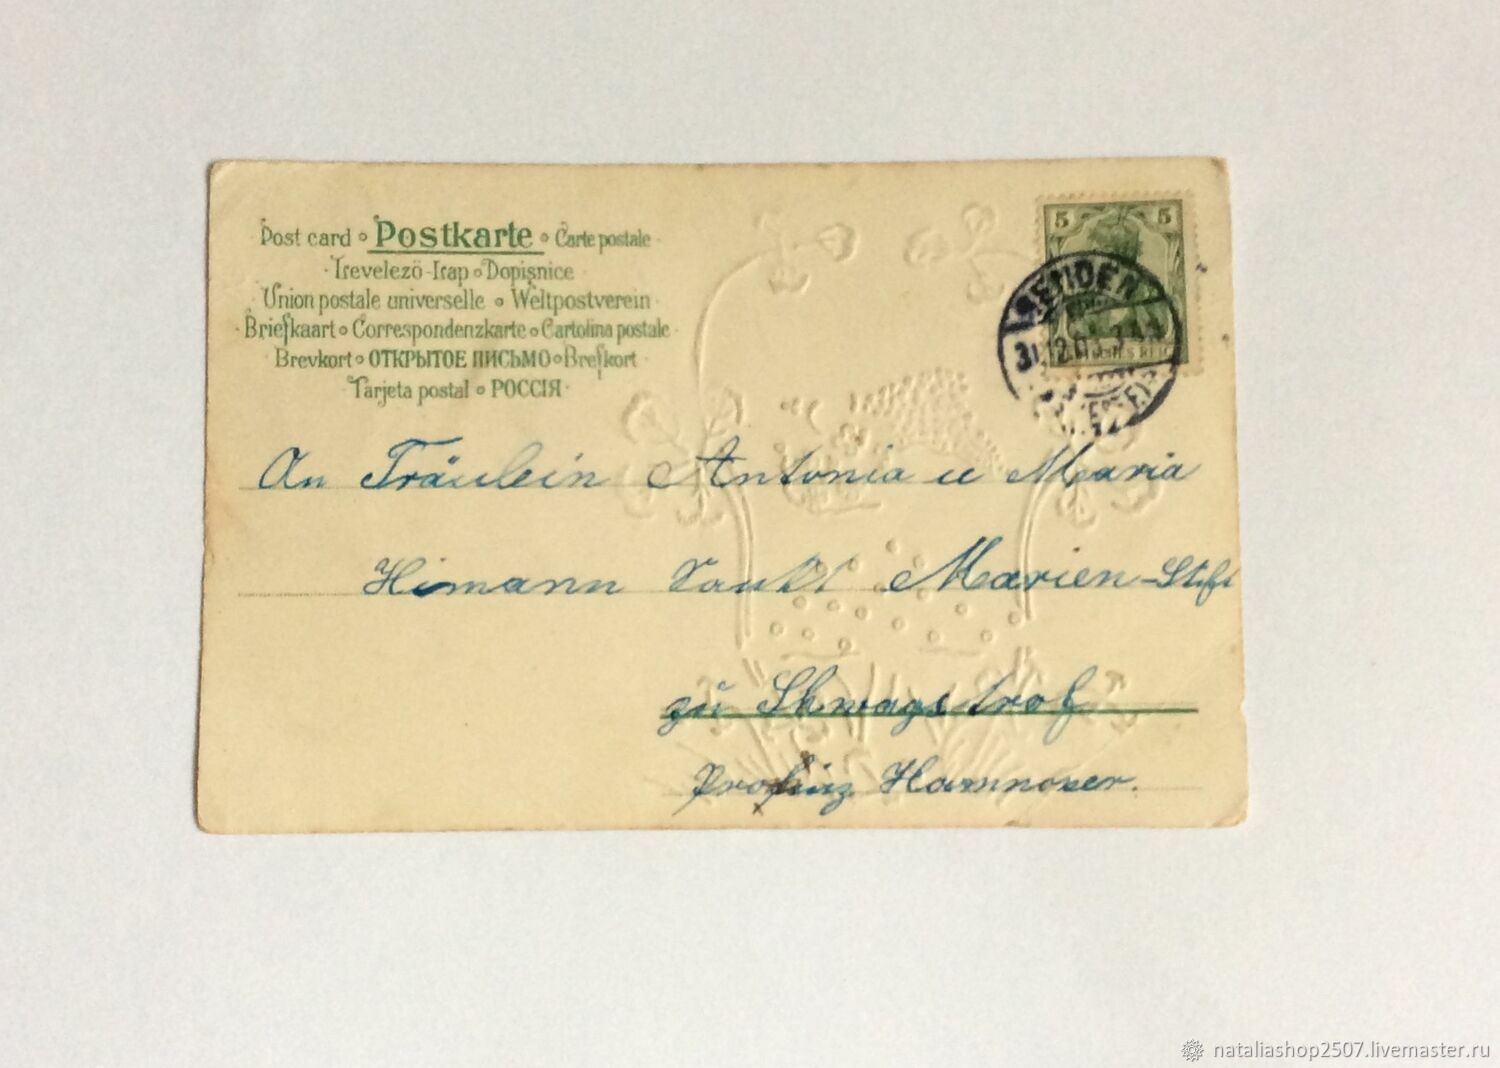 Post card ∘ Postkarte ∘ Carte postale
Irevelezö-Irap ∘ Dopisnice
Union postale universelle ∘ Weltpostverein
Briefkaart ∘ Correspondenzkarte ∘ Cartolina postale
Brevkort ∘ ОТКРЫТОЕ ПИСЬМО ∘ Brefkort
Tarjeta postal ∘ РОССІЯ
5 5
31.12.
An Fräulein Antonia u Maria
Himann Sankt Marien-Stift
zu Shwagstrof
Profinz Hannover.
nataliashop2507.livemaster.ru